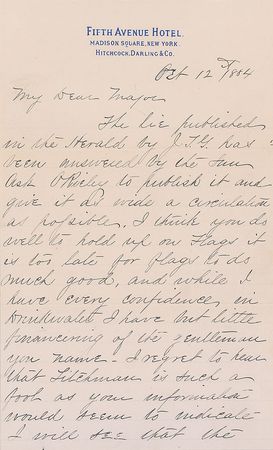 FIFTH AVENUE HOTEL.
MADISON SQUARE, NEW YORK.
HITCHCOCK, DARLING & CO.
Oct 12th 1884
My Dear Major
The lie published
in the Herald by J.T.G. has
been answered by the Sun
Ask O'Riely to publish it and
give it as wide a circulation
as possible. I think you do
well to hold up on flags it
is too late for flags to do
much good, and while I
have every confidence in
Drinkwater I have but little
financering of the gentleman
you name. I regret to hear
that Litchman is such a
fool as your information
would seem to indicate
I will see that the